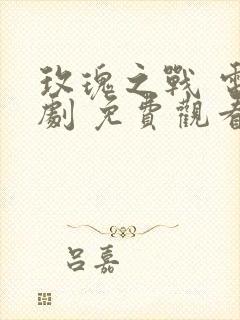 玫瑰之戰 電
劇 免費觀看
呂嘉